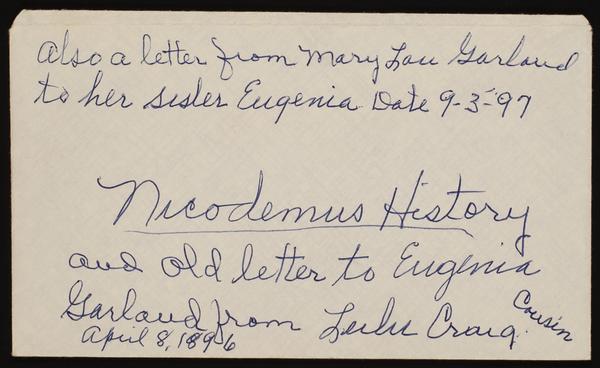 Also a letter from Mary Lou Garland
to her sister Eugenia Date 9-3-97
Nicodemus History
and old letter to Eugenia
Garland from Lulu Craig. Cousin
April 8, 1896